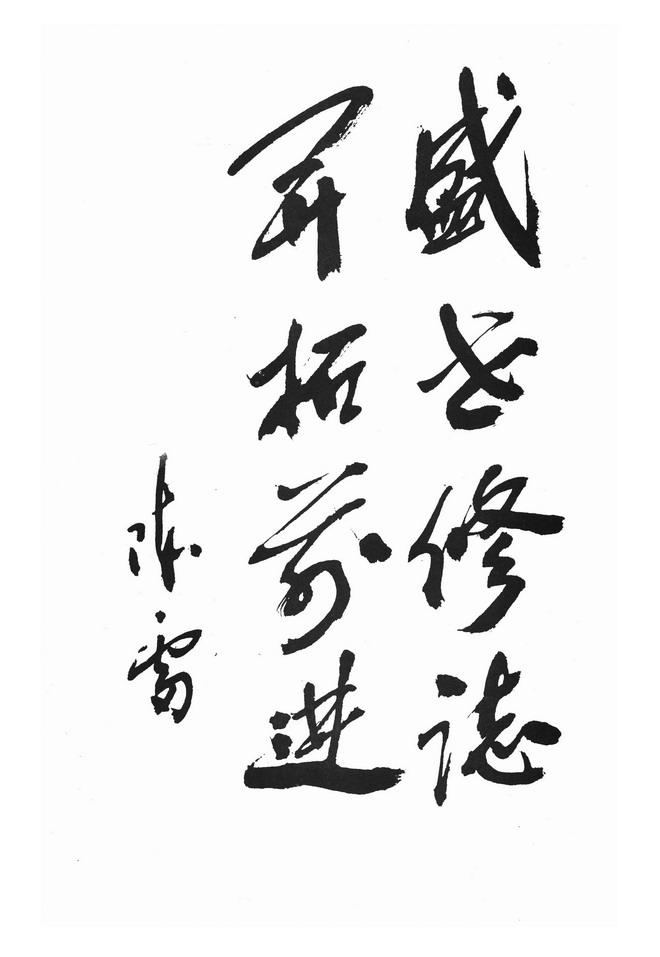 盛世修誌
开拓前进
陈雷